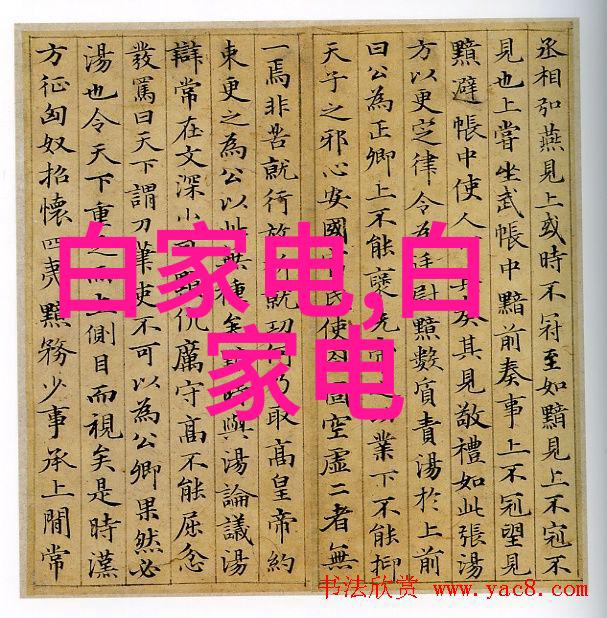 丞相弘燕見上或時不冠至如黯見上不冠不
見也上嘗坐武帳中黯前奏事上不冠望見
黯避帳中使人其見敬禮如此張湯
方以更定律令為廷尉黯數質責湯於上前
曰公為正卿上不能褒先業下不能抑
天子之邪心安國民使空虛二者無
一焉非苦就行放就功何乃取高皇帝約
束更之為公以此無種矣與湯論議湯
辯常在文深小伉厲守高不能屈忿
發罵曰天下謂刀筆吏不可以為公卿果然必
湯也令天下重足而立側目而視矣是時漢
方征匈奴招懷四夷黯務少事承上間常
白家电,白
家电
书法欣赏 www.yac8.com